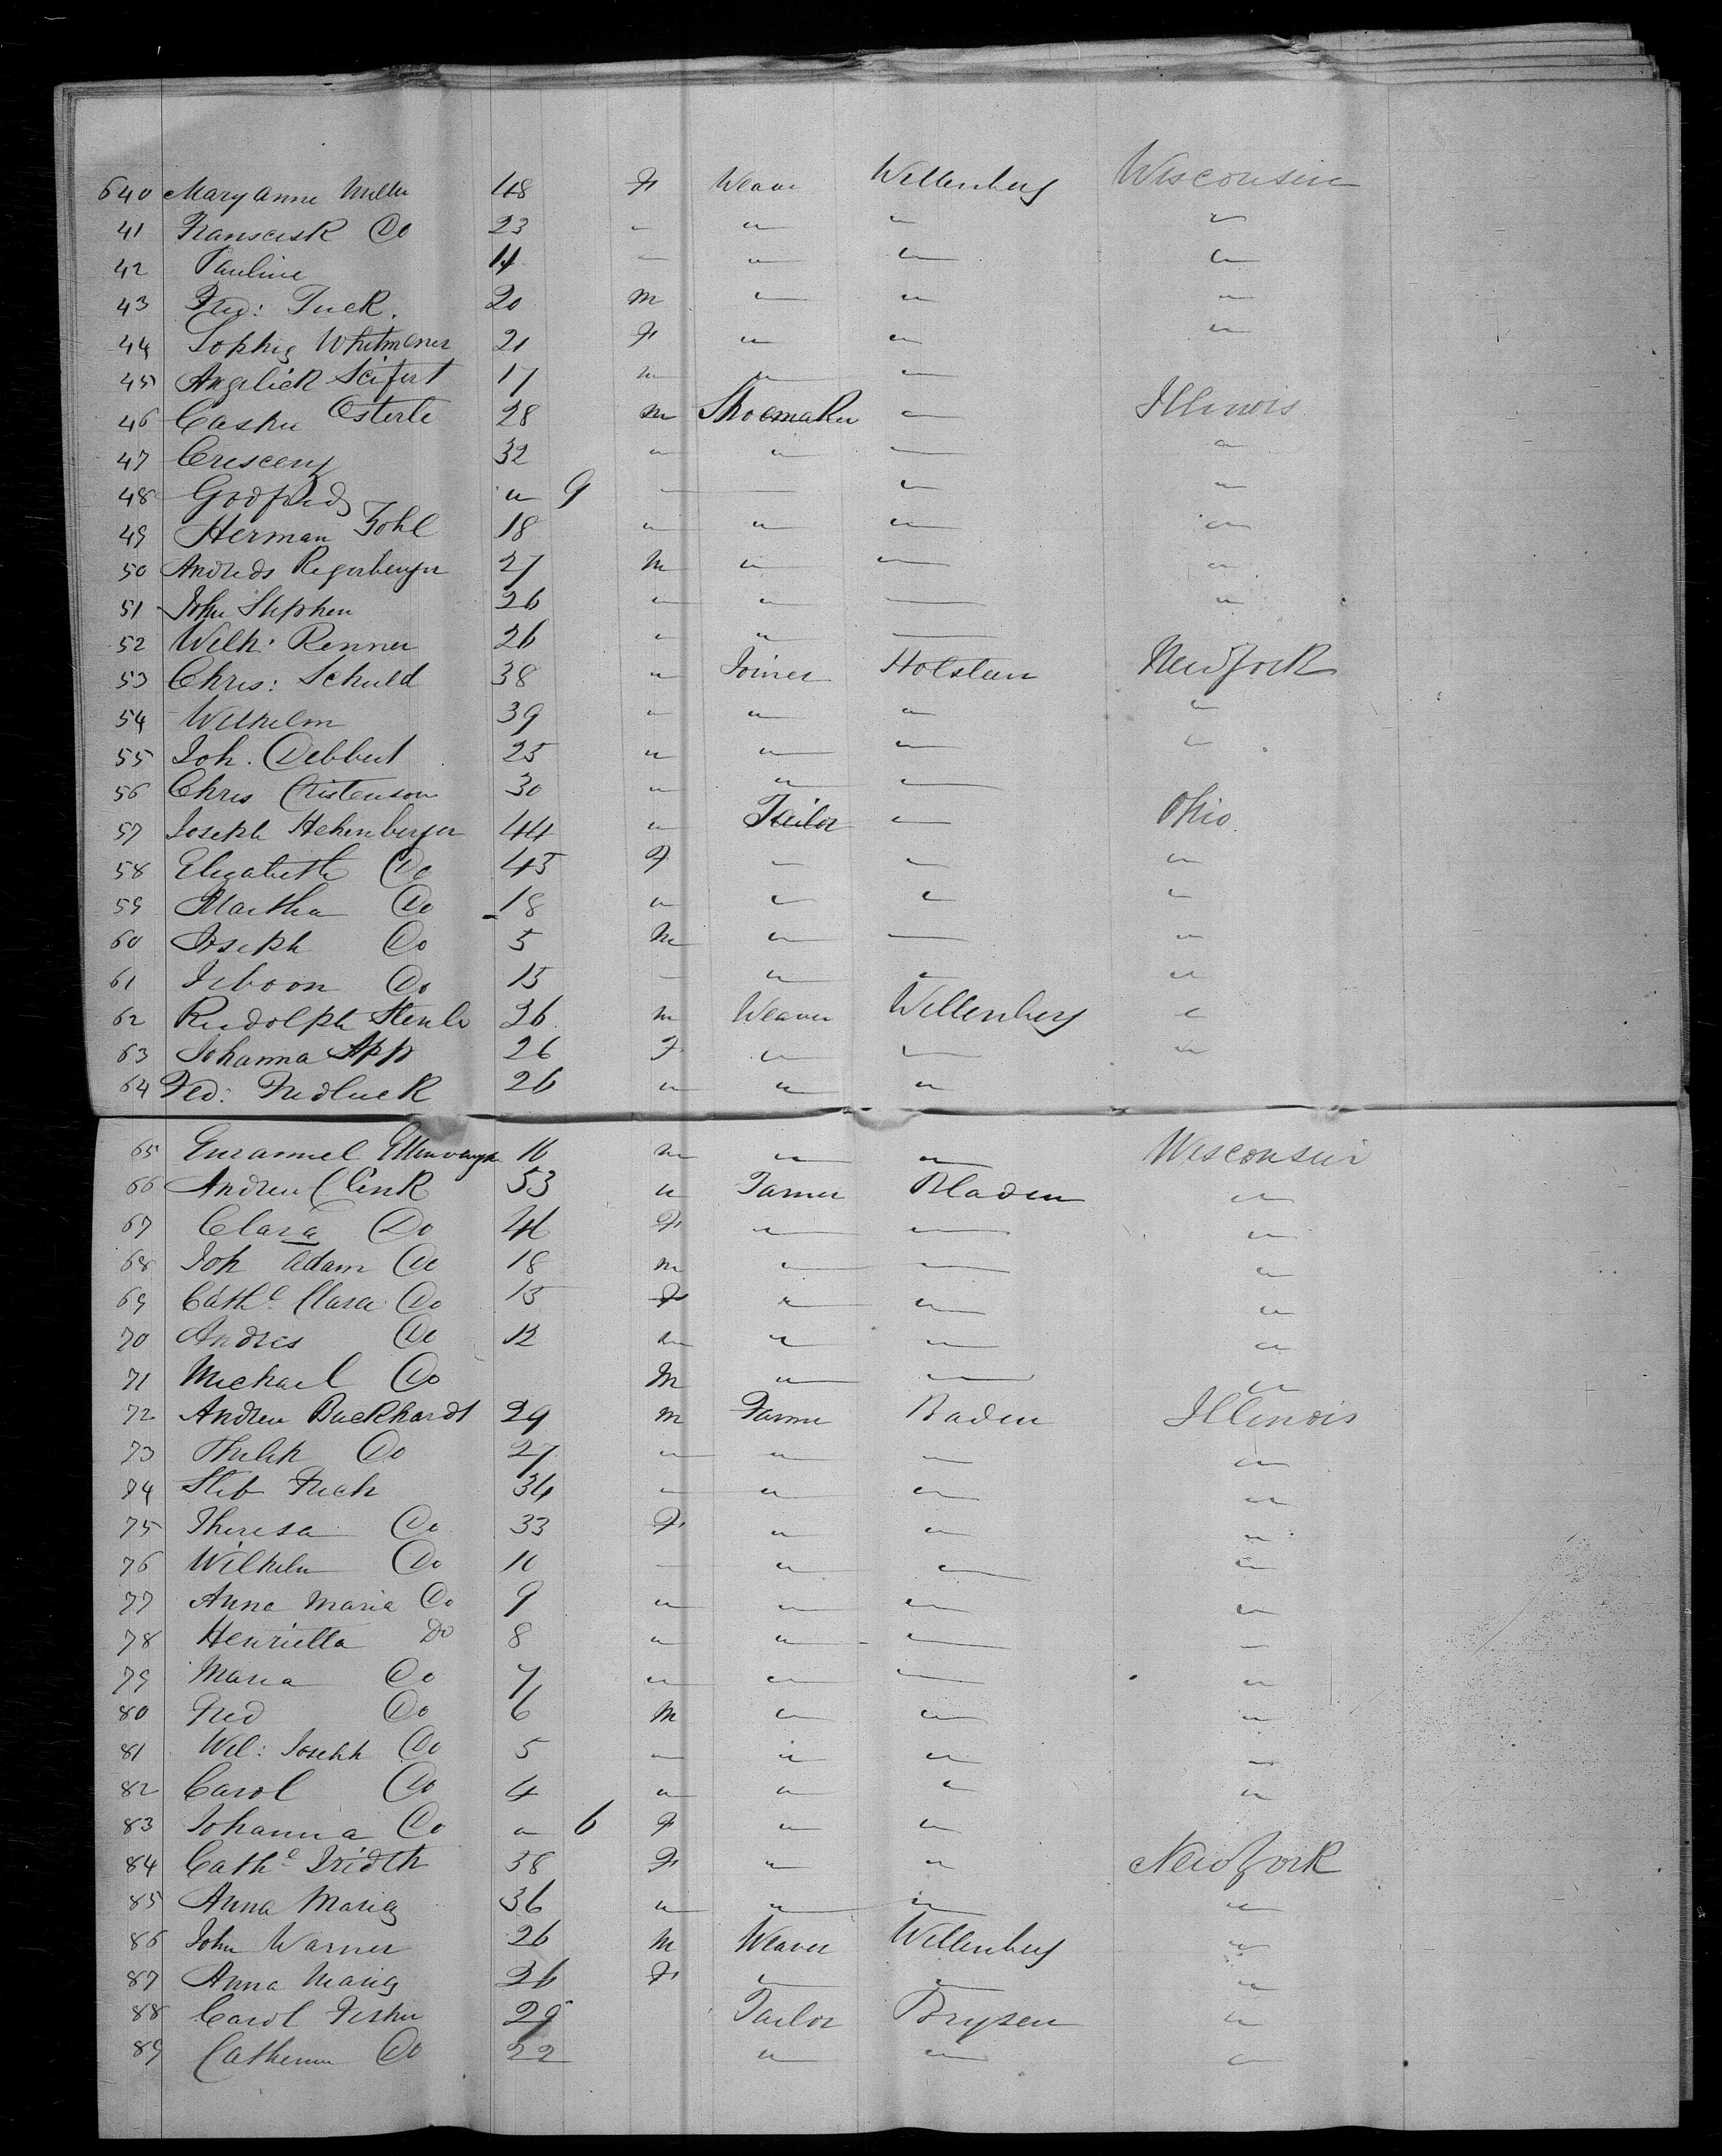 640 Mary Anne Miller 48 F Weaver Willenberg Wisconsin
41 Franscisk Do 23 " " " "
42 Pauline 14 " " " "
43 Fred: Tuck. 20 M " " "
44 Sophia Whitmener 21 F " " "
45 Angelick Seifert 17 " " "
46 Casper Osterle 28 M Shoemaker " Illinois
47 Crescenz 32 " " " "
48 Godfried " 9 " " " "
49 Herman Zohl 18 " " " "
50 Andreds Regerberger 27 M " " "
51 John Stephen 26 " " " "
52 Wilh: Renner 26 " " "
53 Chris: Schuld 38 " Joiner Holstein New York
54 Wilhelm 39 " " " "
55 Joh. Debbert 25 " " " "
56 Chris Cristenson 30 " " "
57 Joseph Hehenberger 44 " Tailor " Ohio
58 Elizabeth Do 45 F " " "
59 Martha Do 18 " " " "
60 Joseph Do 5 M " " "
61 Do 15 " " " "
62 Rudolph Stenle 26 M Weaver Willenberg "
63 Johanna App 26 F " " "
64 Fed: Fredluck 26 " " "
65 Emanuel 16 M " " Wisconsin
66 Andrew Clenk 53 " Farmer Bladen "
67 Clara Do 46 F " " "
68 Joh Adam Do 18 M " " "
69 Cathe Clara Do 15 F " " "
70 Andres Do 12 M " " "
71 Michael Do M " " "
72 Andrew Buckhardt 29 M Farmer Baden Illinois
73 Do 27 " " " "
74 Fuch 34 " " " "
75 Theresa Do 33 F " " "
76 Wilhelm Do 10 " " " "
77 Anna Maria Do 9 " " " "
78 Henrietta Do 8 " " " "
79 Maria Do 7 " " " "
80 Fred Do 6 M " " "
81 Wil: Joseph Do 5 " " " "
82 Carol Do 4 " " " "
83 Johanna Do " 6 F " "
84 Cathe Dridth 38 F " " New York
85 Anna Maria 36 " " " "
86 John Warner 26 M Weaver Willenberg "
87 Anna Maria 26 F " " "
88 Carol Fisher 29 Tailor Brysen "
89 Catherine Do 22 " " "